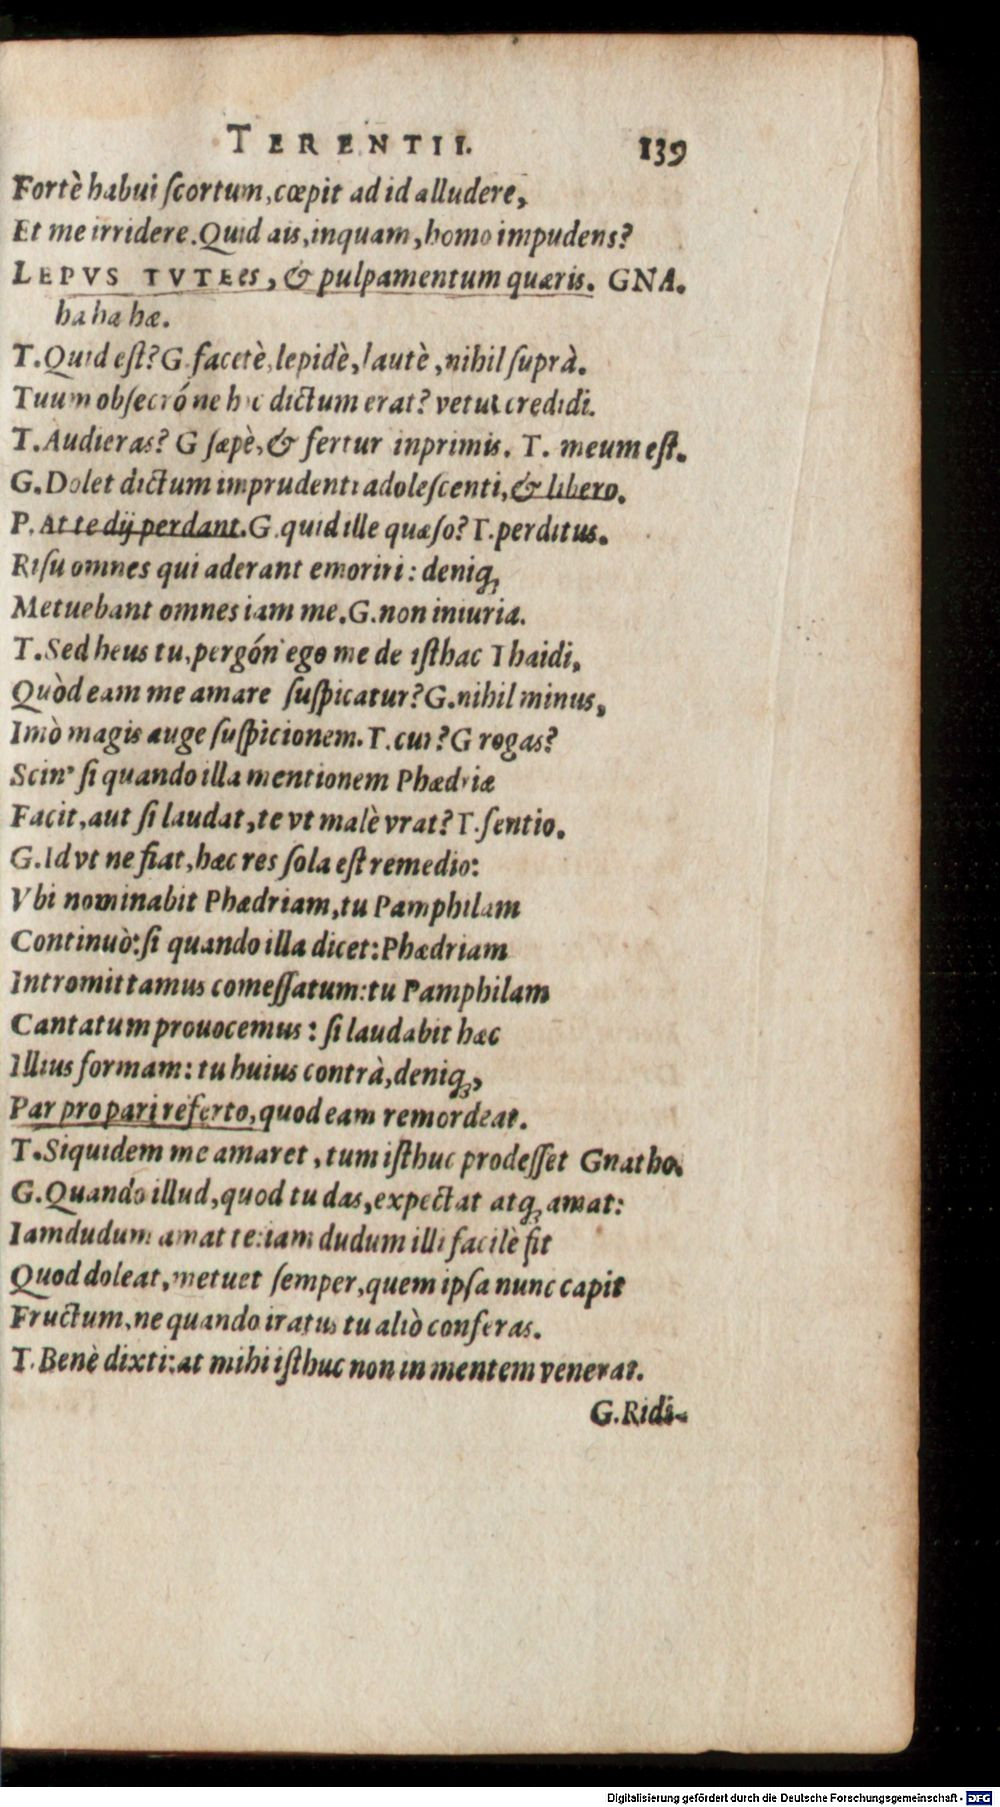 TERENTII. 139
Fortè habui ſcortum, cœpit ad id alludere,
Et me irridere. Quid ais, inquam, homo impudens?
LEPVS TVTE es, & pulpamentum quæris. GNA.
ha ha hæ.
T. Quid eſt? G. facetè, lepidè, lautè, nihil ſuprà.
Tuum obſecróne hoc dictum erat? vetus credidi.
T. Audieras? G ſæpè, & fertur inprimis. T. meum eſt.
G. Dolet dictum imprudenti adoleſcenti, & libero.
P. At te dij perdant. G. quid ille quæſo? T. perditus.
Riſu omnes qui aderant emoriri: deniq;
Metuebant omnes iam me. G. non iniuria.
T. Sed heus tu, pergón' ego me de iſthac Thaidi,
Quòd eam me amare ſuſpicatur? G. nihil minus,
Imò magis auge ſuſpicionem. T. cur? G rogas?
Scin' ſi quando illa mentionem Phædriæ
Facit, aut ſi laudat, te vt malè vrat? T. ſentio.
G. Id vt ne fiat, hæc res ſola eſt remedio:
Vbi nominabit Phædriam, tu Pamphilam
Continuò: ſi quando illa dicet: Phædriam
Intromittamus comeſſatum: tu Pamphilam
Cantatum prouocemus: ſi laudabit hæc
Illius formam: tu huius contrà, deniq;,
Par pro pari referto, quod eam remordeat.
T. Siquidem me amaret, tum iſthuc prodeſſet Gnatho.
G. Quando illud, quod tu das, expectat atq; amat:
Iamdudum amat te: iam dudum illi facilè fit
Quod doleat, metuet ſemper, quem ipſa nunc capit
Fructum, ne quando iratus tu aliò conferas.
T. Benè dixti: at mihi iſthuc non in mentem venerat.
G. Ridi-
Digitalisierung gefördert durch die Deutsche Forschungsgemeinschaft - DFG